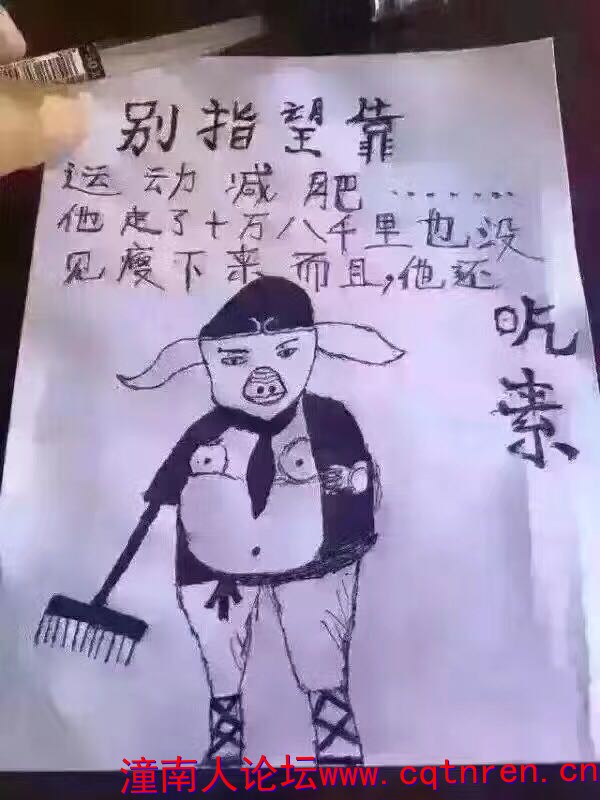 别指望靠
运动减肥........
他走了十万八千里也没
见瘦下来而且,他还
吃素
潼南人论坛www.cqtnren.cn